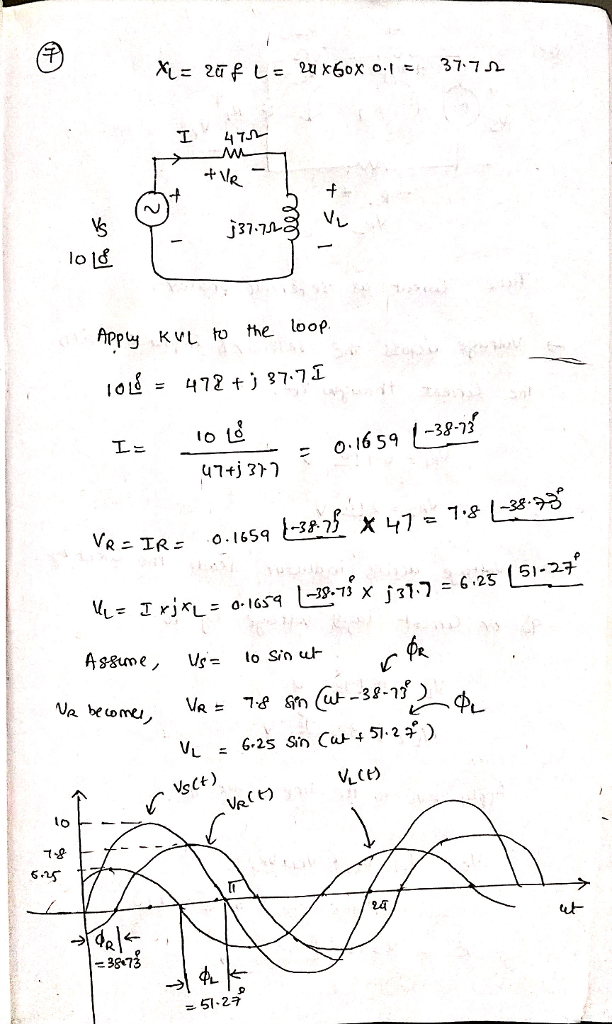 7
X_L = 2π f L = 2π x 60 x 0.1 = 37.7 Ω
I 47Ω
+ V_R -
+
+
V_S
j37.7Ω
V_L
-
-
10 ∠0°
Apply KVL to the loop.
10∠0° = 47I + j 37.7 I
I = 10 ∠0° / 47+j37.7 = 0.1659 ∠-38.73°
V_R = IR = 0.1659 ∠-38.73° X 47 = 7.8 ∠-38.73°
V_L = I x jX_L = 0.1659 ∠-38.73° x j37.7 = 6.25 ∠51.27°
Assume, V_S = 10 sin ωt
φ_R
V_R becomes, V_R = 7.8 sin (ωt - 38.73°)
φ_L
V_L = 6.25 sin (ωt + 51.27°)
V_S(t)
V_R(t)
V_L(t)
10
7.8
6.25
π
2π
ωt
φ_R
= 38.73°
φ_L
= 51.27°